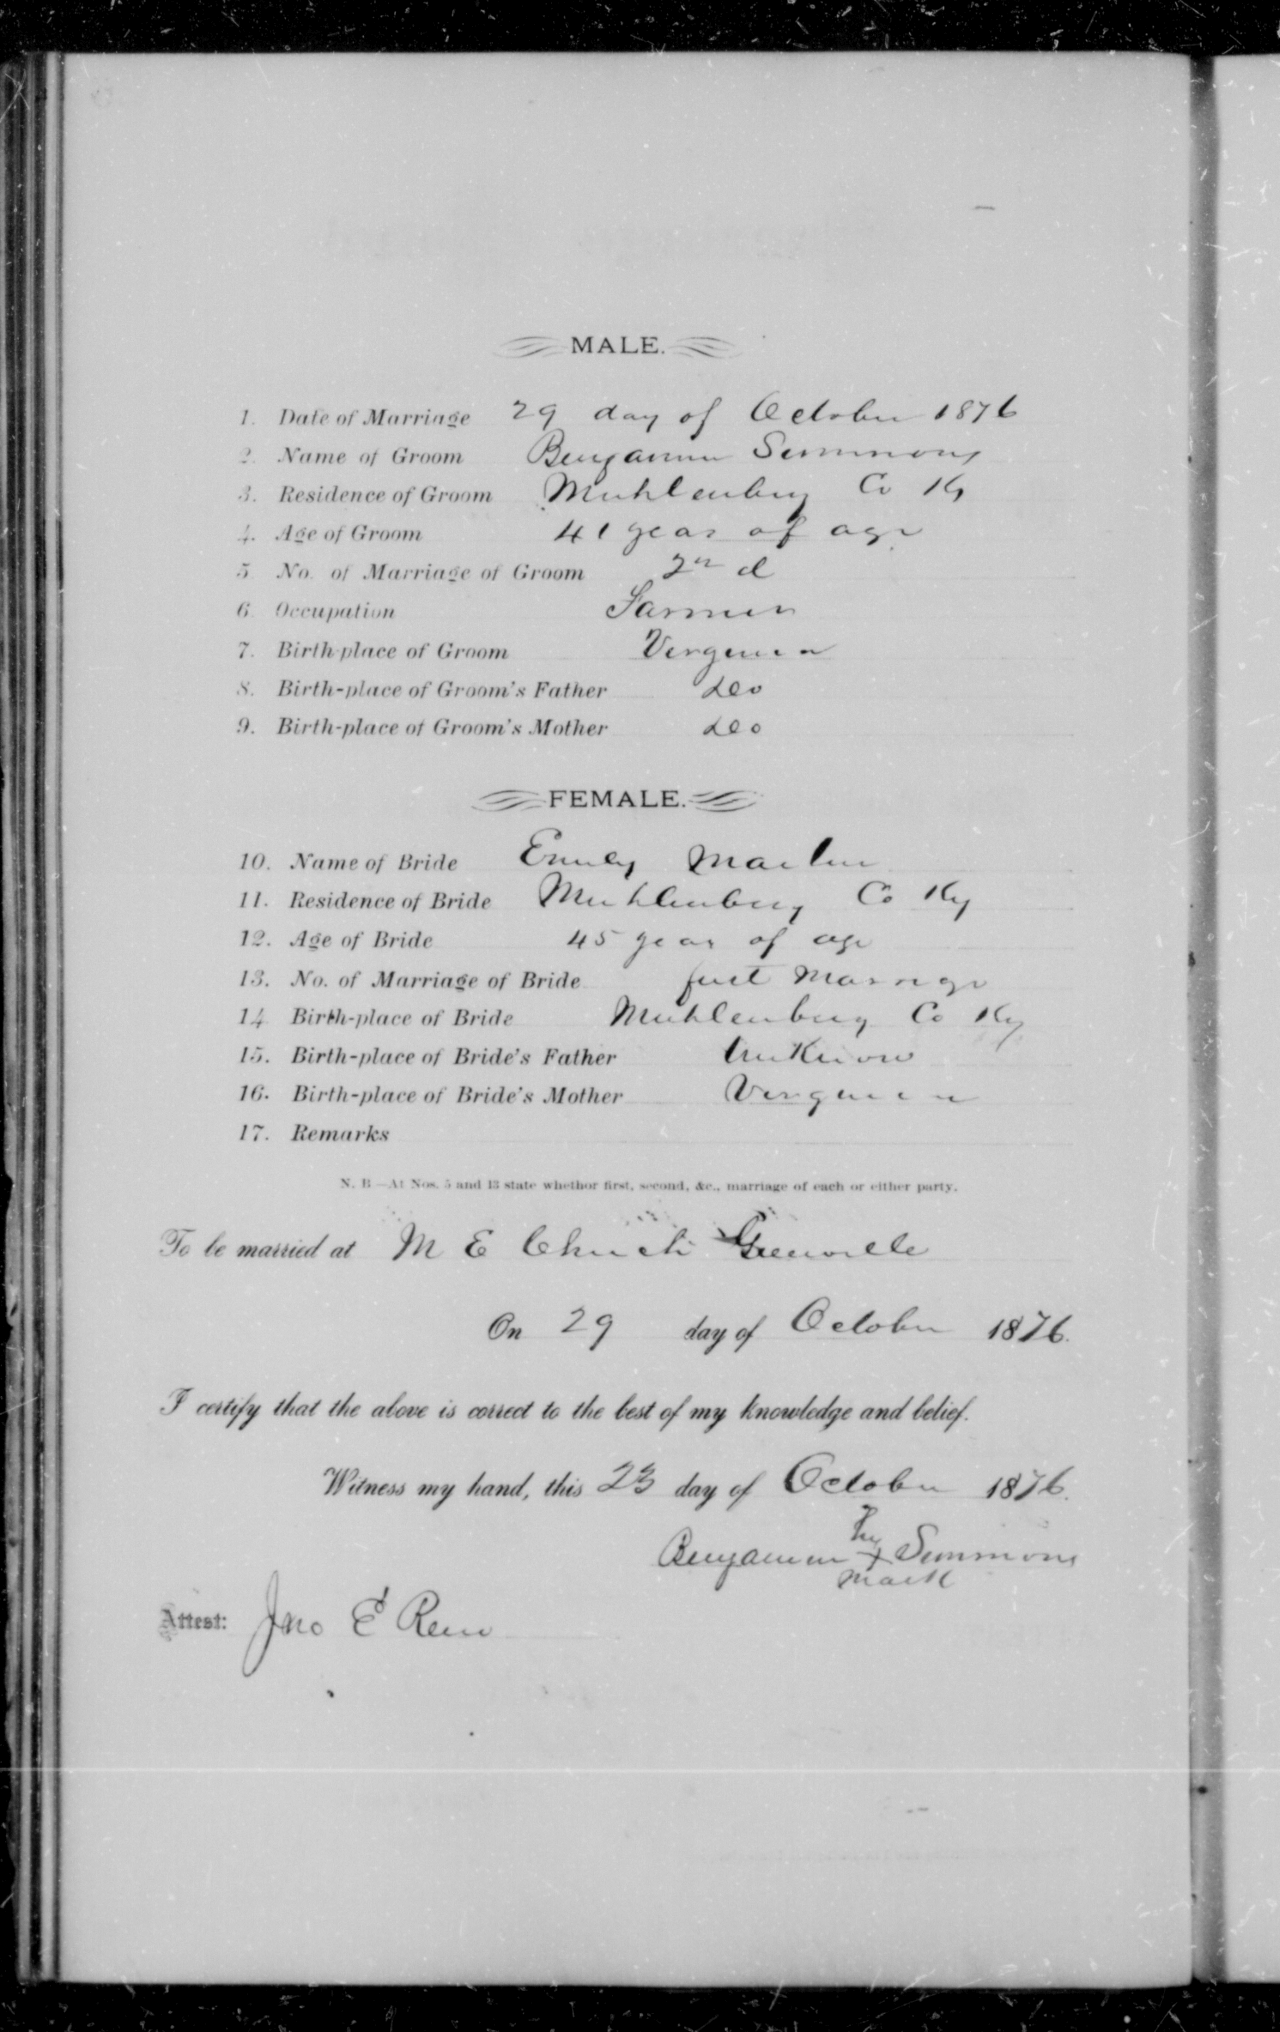 MALE.
1. Date of Marriage 29 day of October 1876
2. Name of Groom Benjamin Simmons
3. Residence of Groom Muhlenburg Co Ky
4. Age of Groom 41 years of age
5 No. of Marriage of Groom 2nd
6. Occupation Farmer
7. Birth-place of Groom Virginia
8. Birth-place of Groom's Father do
9. Birth-place of Groom's Mother do
FEMALE.
10. Name of Bride Emily Martin
11. Residence of Bride Muhlenburg Co Ky
12. Age of Bride 45 years of age
13. No. of Marriage of Bride first Marriage
14 Birth-place of Bride Muhlenburg Co Ky
15. Birth-place of Bride's Father Unknown
16. Birth-place of Bride's Mother Virginia
17. Remarks
N. B.—At Nos. 5 and 13 state whethor first, second, &c., marriage of each or either party.
To be married at M E Church Greenville
On 29 day of October 1876.
I certify that the above is correct to the best of my knowledge and belief.
Witness my hand, this 23 day of October 1876.
his
Benjamin X Simmons
mark
Attest: Jno E Reno